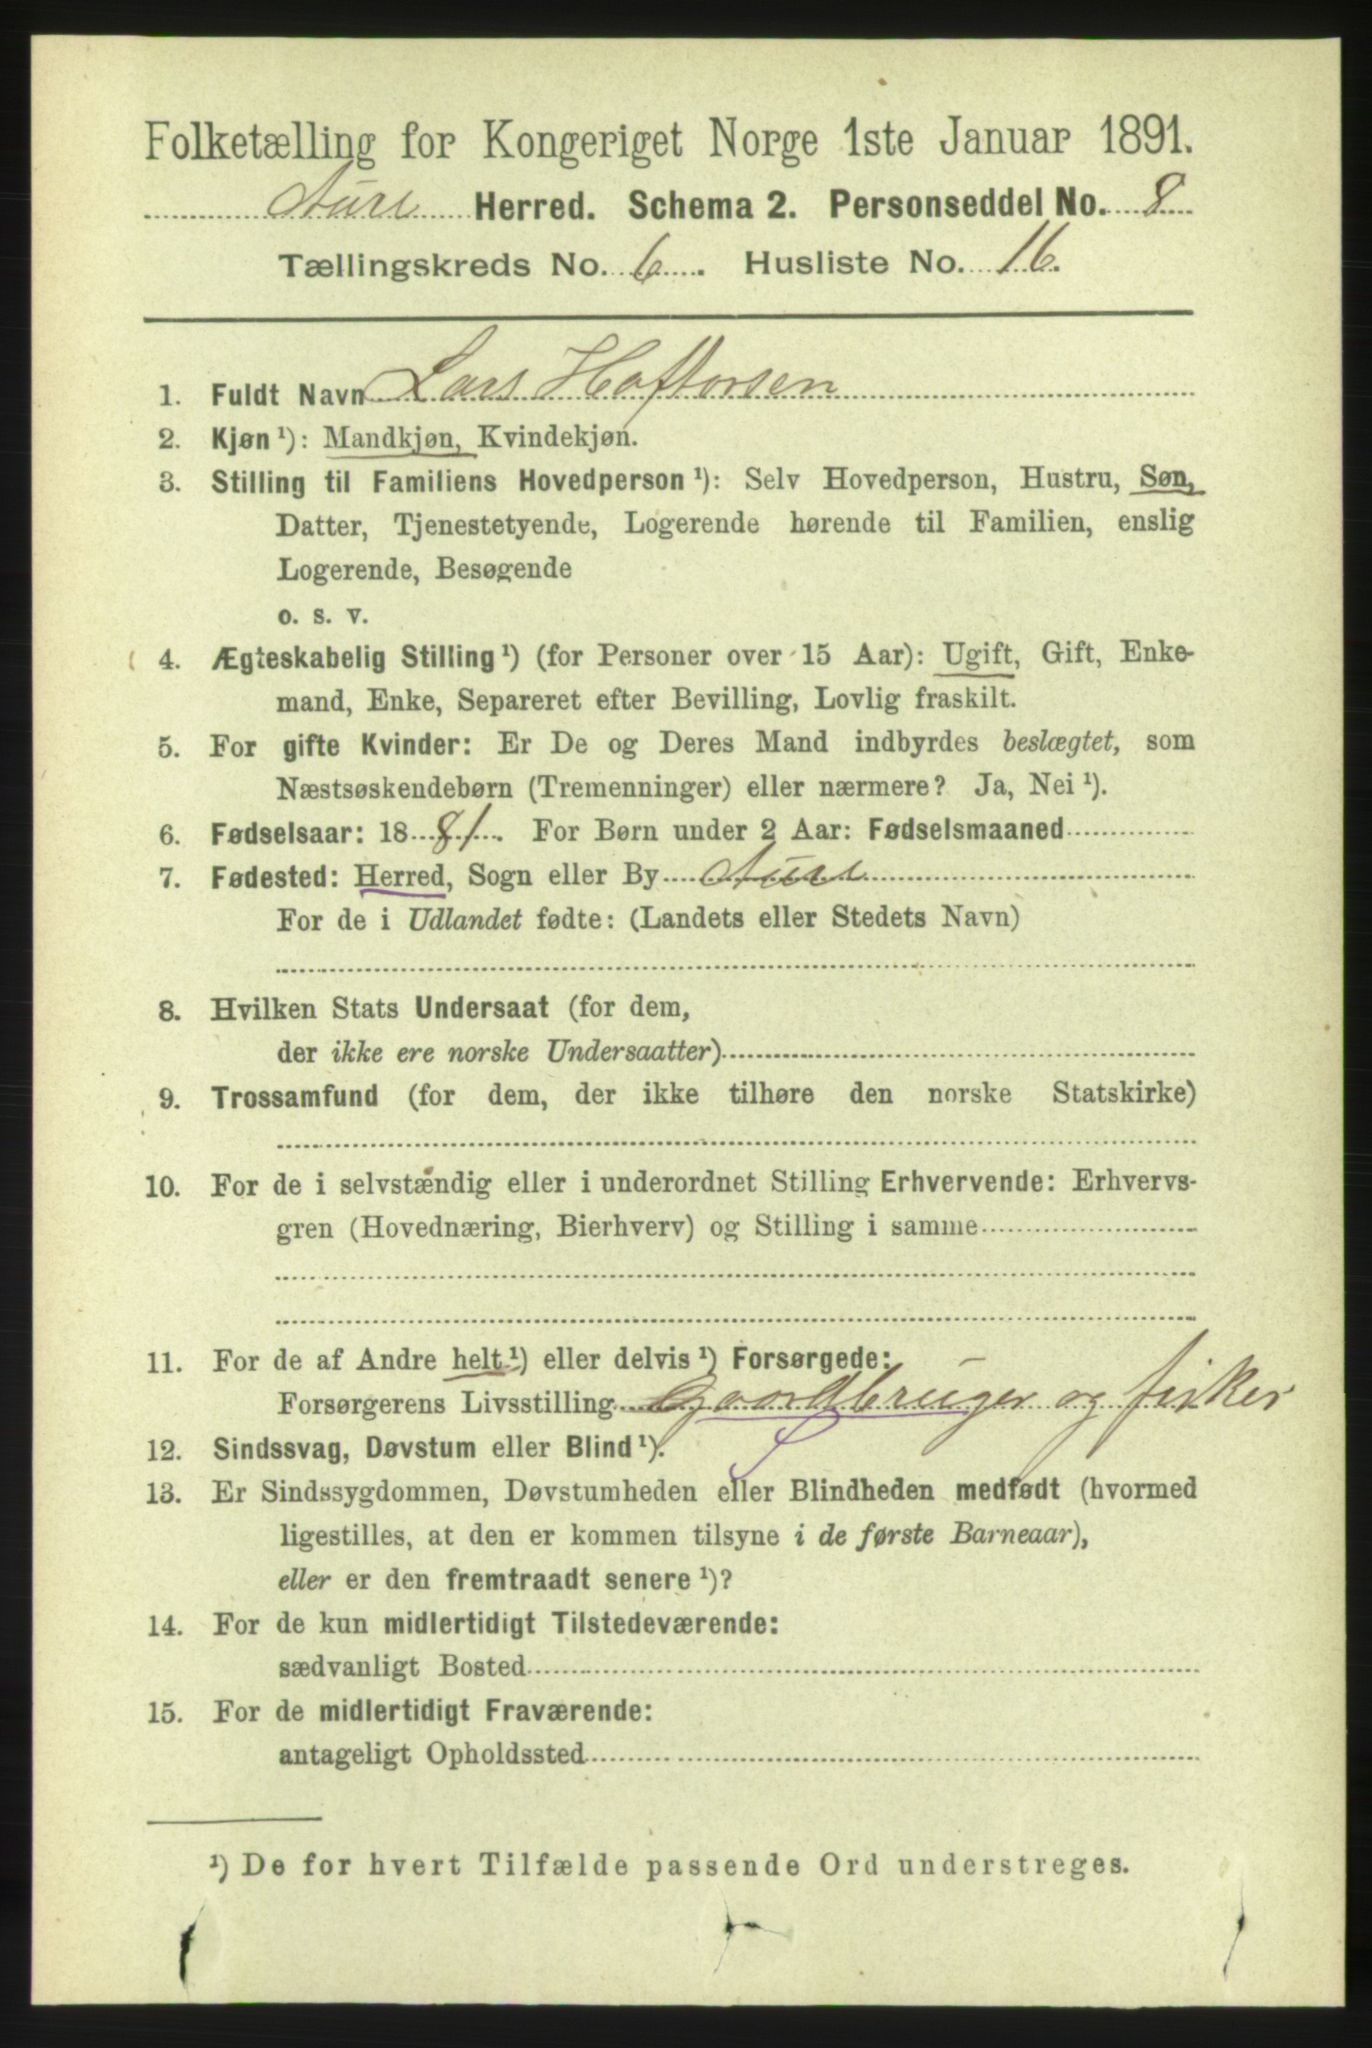 Folketælling for Kongeriget Norge 1ste Januar 1891.
Aure Herred. Schema 2. Personseddel No. 8
Tællingskreds No. 6. Husliste No. 16.
1. Fuldt Navn Lars Haftorsen
2. Kjøn ¹): Mandkjøn, Kvindekjøn.
3. Stilling til Familiens Hovedperson ¹): Selv Hovedperson, Hustru, Søn,
Datter, Tjenestetyende, Logerende hørende til Familien, enslig
Logerende, Besøgende
o. s. v.
4. Ægteskabelig Stilling ¹) (for Personer over 15 Aar): Ugift, Gift, Enke-
mand, Enke, Separeret efter Bevilling, Lovlig fraskilt.
5. For gifte Kvinder: Er De og Deres Mand indbyrdes beslægtet, som
Næstsøskendebørn (Tremenninger) eller nærmere? Ja, Nei ¹).
6. Fødselsaar: 1881. For Børn under 2 Aar: Fødselsmaaned
7. Fødested: Herred, Sogn eller By Aure
For de i Udlandet fødte: (Landets eller Stedets Navn)
8. Hvilken Stats Undersaat (for dem,
der ikke ere norske Undersaatter)
9. Trossamfund (for dem, der ikke tilhøre den norske Statskirke)
10. For de i selvstændig eller i underordnet Stilling Erhvervende: Erhvervs-
gren (Hovednæring, Bierhverv) og Stilling i samme
11. For de af Andre helt ¹) eller delvis ¹) Forsørgede:
Forsørgerens Livsstilling Gaardbruger og fisker
12. Sindssvag, Døvstum eller Blind ¹).
13. Er Sindssygdommen, Døvstumheden eller Blindheden medfødt (hvormed
ligestilles, at den er kommen tilsyne i de første Barneaar),
eller er den fremtraadt senere ¹)?
14. For de kun midlertidigt Tilstedeværende:
sædvanligt Bosted
15. For de midlertidigt Fraværende:
antageligt Opholdssted
¹) De for hvert Tilfælde passende Ord understreges.